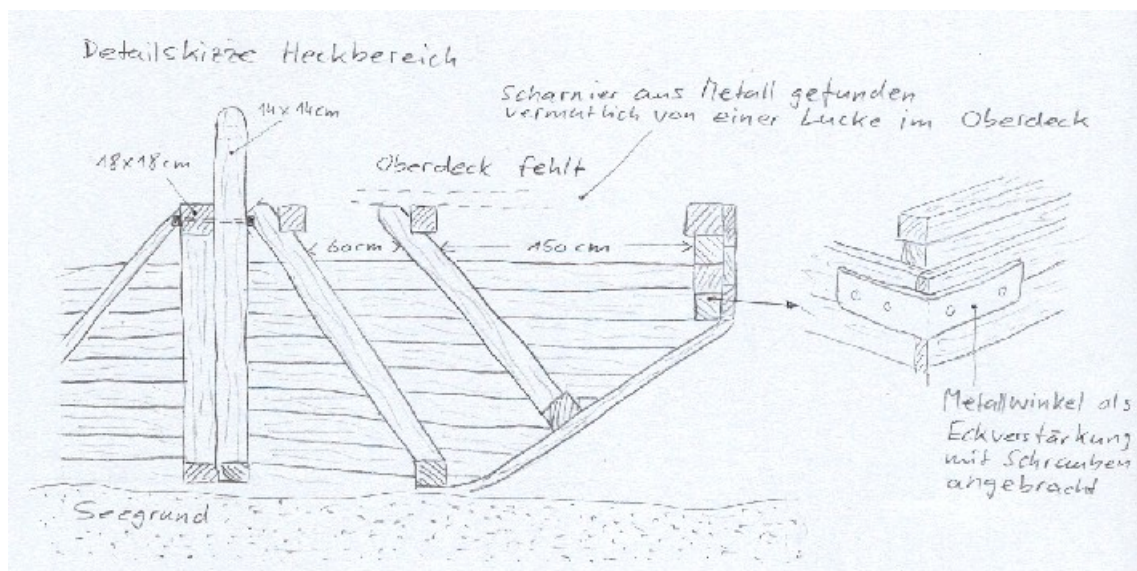 Detailskizze Heckbereich
14x14cm
18x18cm
Scharnier aus Metall gefunden
vermutlich von einer Lucke im Oberdeck
Oberdeck fehlt
60cm
150 cm
Metallwinkel als
Eckverstärkung
mit Schrauben
angebracht
Seegrund